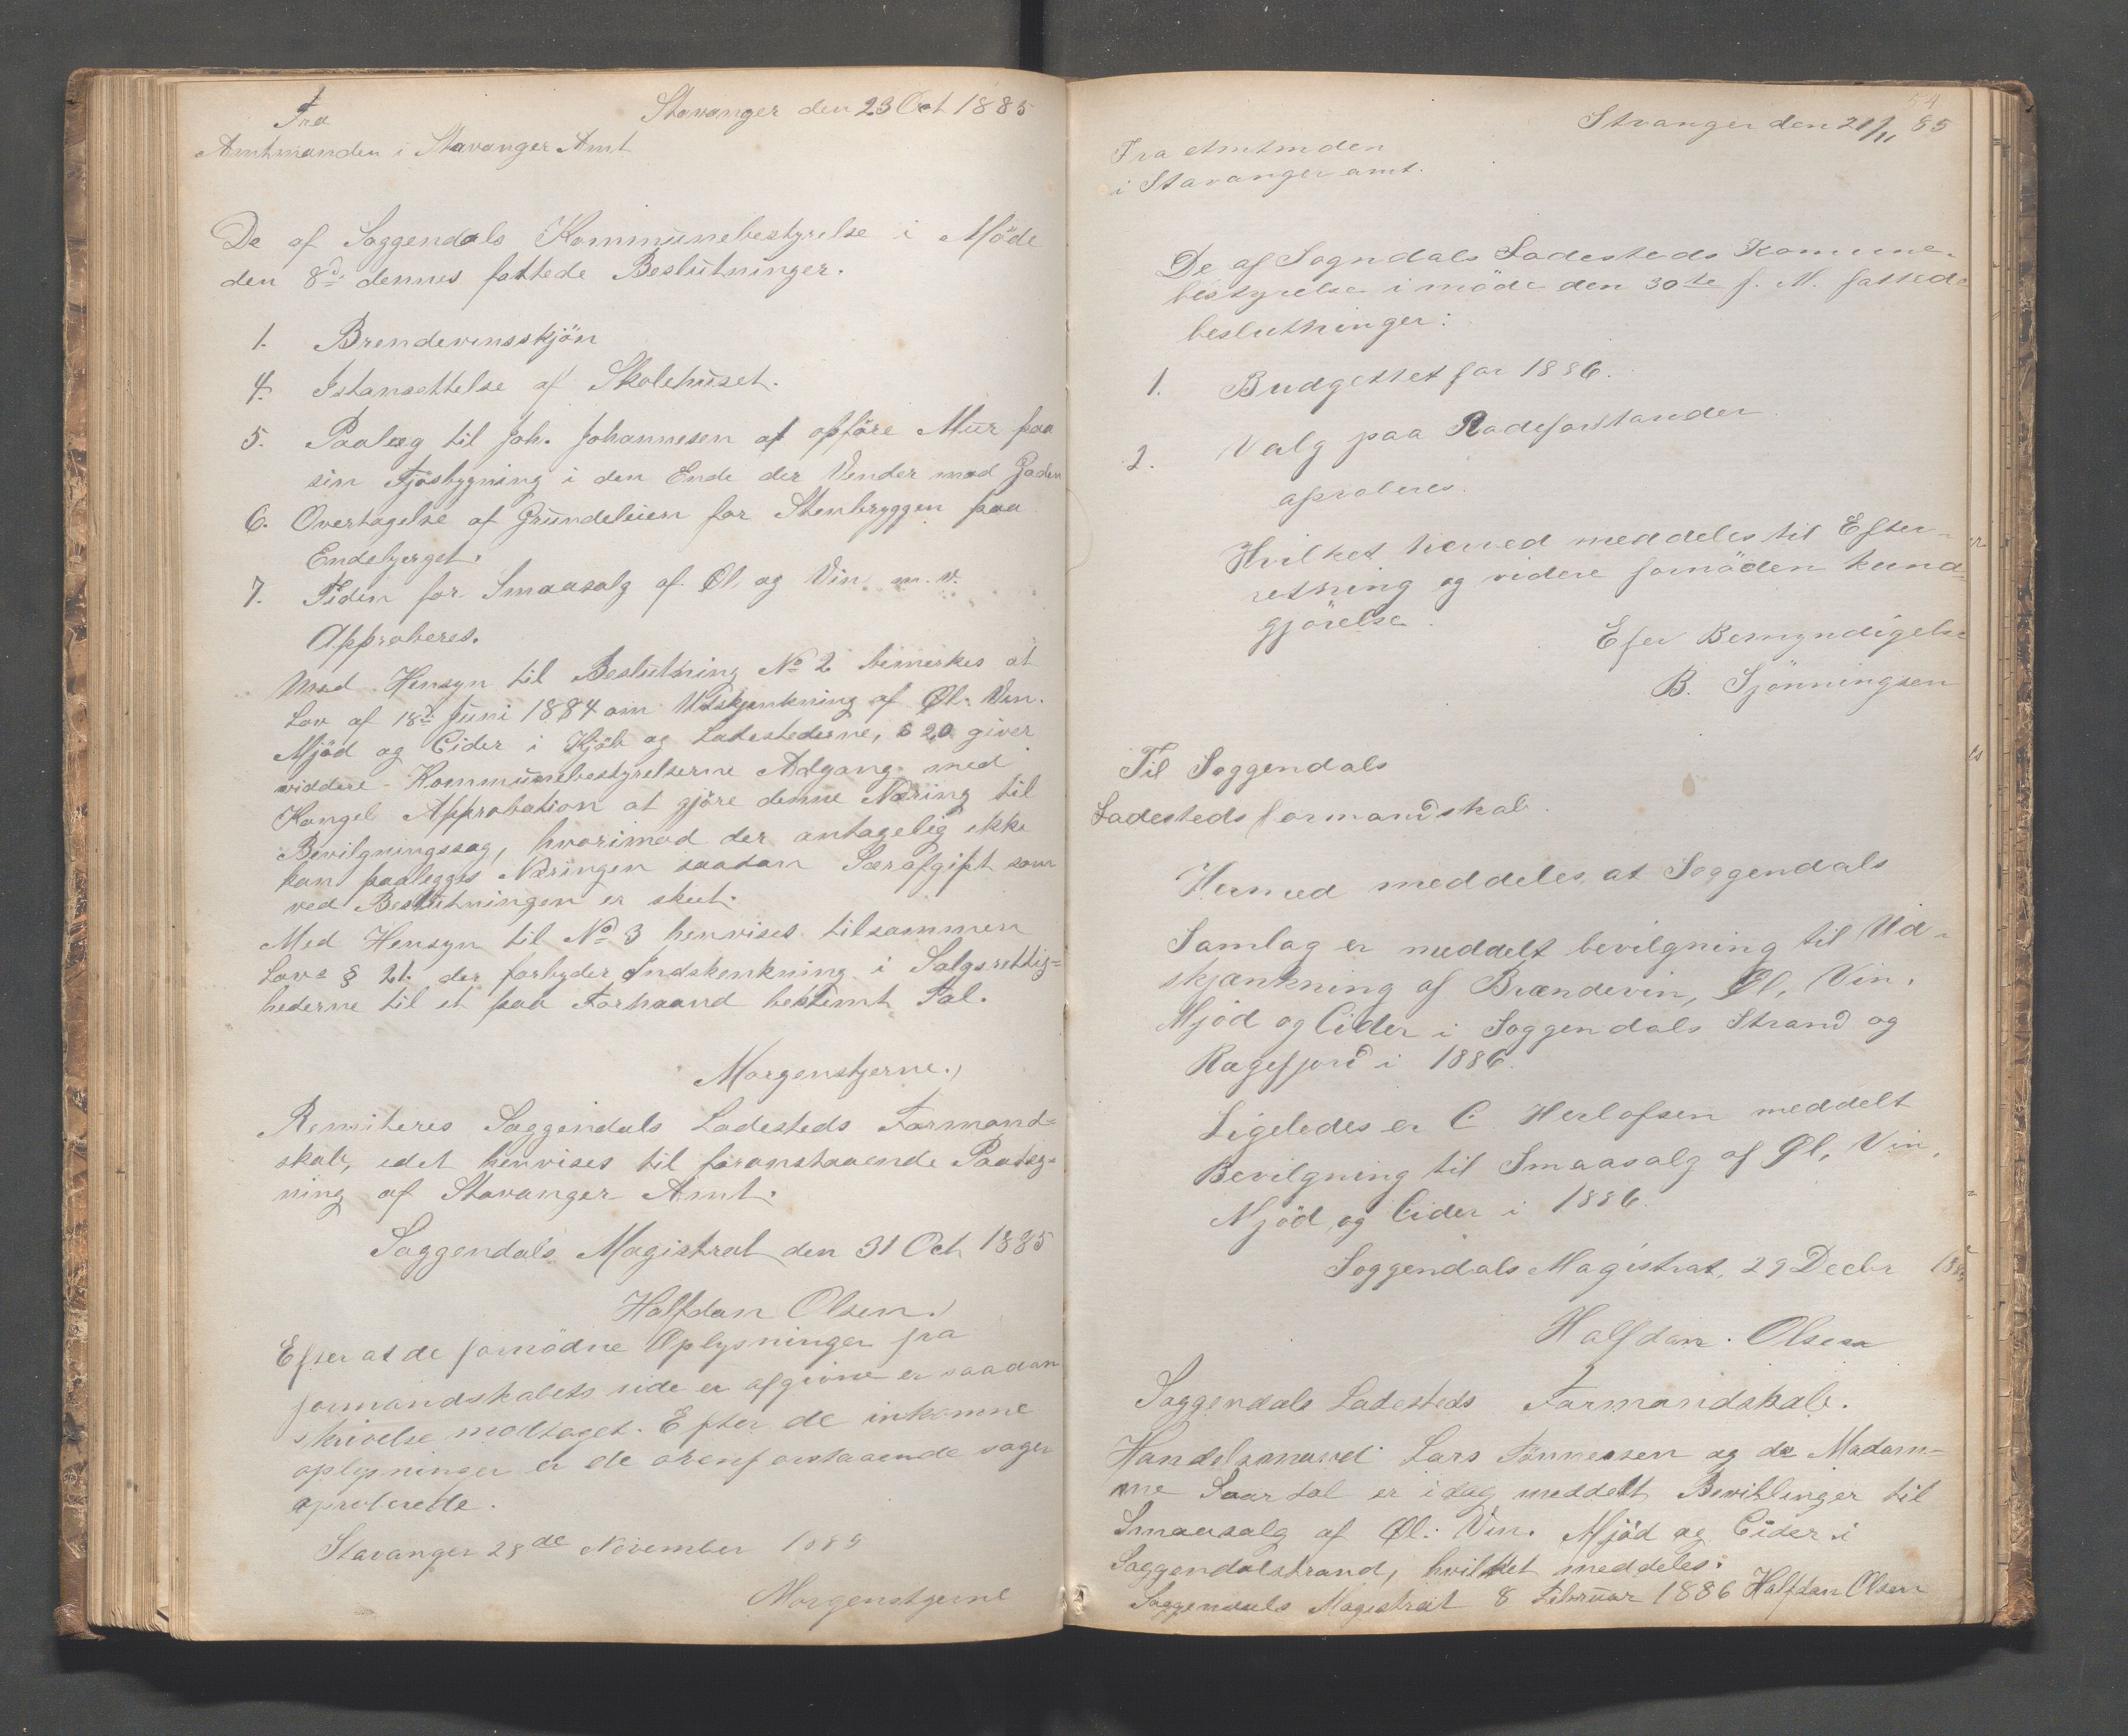 Fra
Stavanger den 23 Oct 1885
Amtmanden i Stavanger Amt
De af Soggendals Kommunebestyrelse i Möde
den 8d. dennes fattede Beslutninger.
1. Brendevinsskjön
4. Istansettelse af Skolehuset.
5. Paalæg til Joh. Johannesen at opföre Mur paa
sin Fjösbygning i den Ende der Vender mod Gaden
6. Overtagelse af Grundeleien for Stenbryggen paa
Endebjerget.
7. Tiden for Smaasalg af Øl og Vin m. v.
Approberes.
Med Hensyn til Beslutning No 2 bemerkes at
Lov af 18d. Juni 1884 om Udskjenkning af Øl. Vin.
Mjöd og Cider i Kjöb og Ladestederne, § 20 giver
viddere Kommunebestyrelserne Adgang med
Kongel Approbation at gjöre denne Næring til
Bevilgningssag, hvorimod der antagelig ikke
kan paalegges Næringen saadan Særafgift som
ved Beslutningen er skeet.
Med Hensyn til No 3 henvises tilsammen
Lovs § 21. der forbyder Indskenkning i Salgsrettig=
hederne til et paa Forhaand bestemt Tal.
Morgenstjerne.
Remiteres Soggendals Ladesteds Formand=
skab, idet henvises til foranstaaende Paateg=
ning af Stavanger Amt.
Soggendals Magistrat den 31 Oct 1885
Halfdan Olsen.
Efter at de fornödne Oplysninger fra
formandskabets side er afgivne er saadan
skrivelse modtaget. Efter de inkomne
oplysninger er de ovenforstaaende sager
aproberede.
Stavanger 28de November 1885
Morgenstjerne
54
Stvanger den 21/11 85
Fra Amtmden
i Stavanger amt.
De af Sogndals Ladesteds Komune-
bestyrelse i möde den 30te f. M. fattede
beslutninger:
1. Budgettet for 1886.
2. Valg paa Rodeforstander
aproberes.
Hvilket herved meddeles til Efter-
retning og videre fornöden kund-
gjörelse.
Efer Bemyndigelse
B. Sjönningsen
Til Soggendals
Ladesteds formandskab.
Herved meddeles, at Soggendals
Samlag er meddelt bevilgning til Ud-
skjænkning af Brændevin, Øl, Vin.
Mjöd og Cider i Soggendals Strand og
Ragefjord i 1886.
Ligeledes er C. Herlofsen meddelt
Bevilgning til Smaasalg af Øl, Vin,
Mjöd, og Cider i 1886.
Soggendals Magistrat, 29 Decbr 1885
Halfdan. Olsen
Soggendals Ladesteds Formandskab.
Handelsmand Lars Tönnesen og de Madam-
me Saartal er idag meddelt Bevillinger til
Smaasalg af Øl. Vin. Mjöd og Cider i
Soggendalstrand, hvilket meddeles.
Soggendals Magistrat 8 Februar 1886 Halfdan Olsen